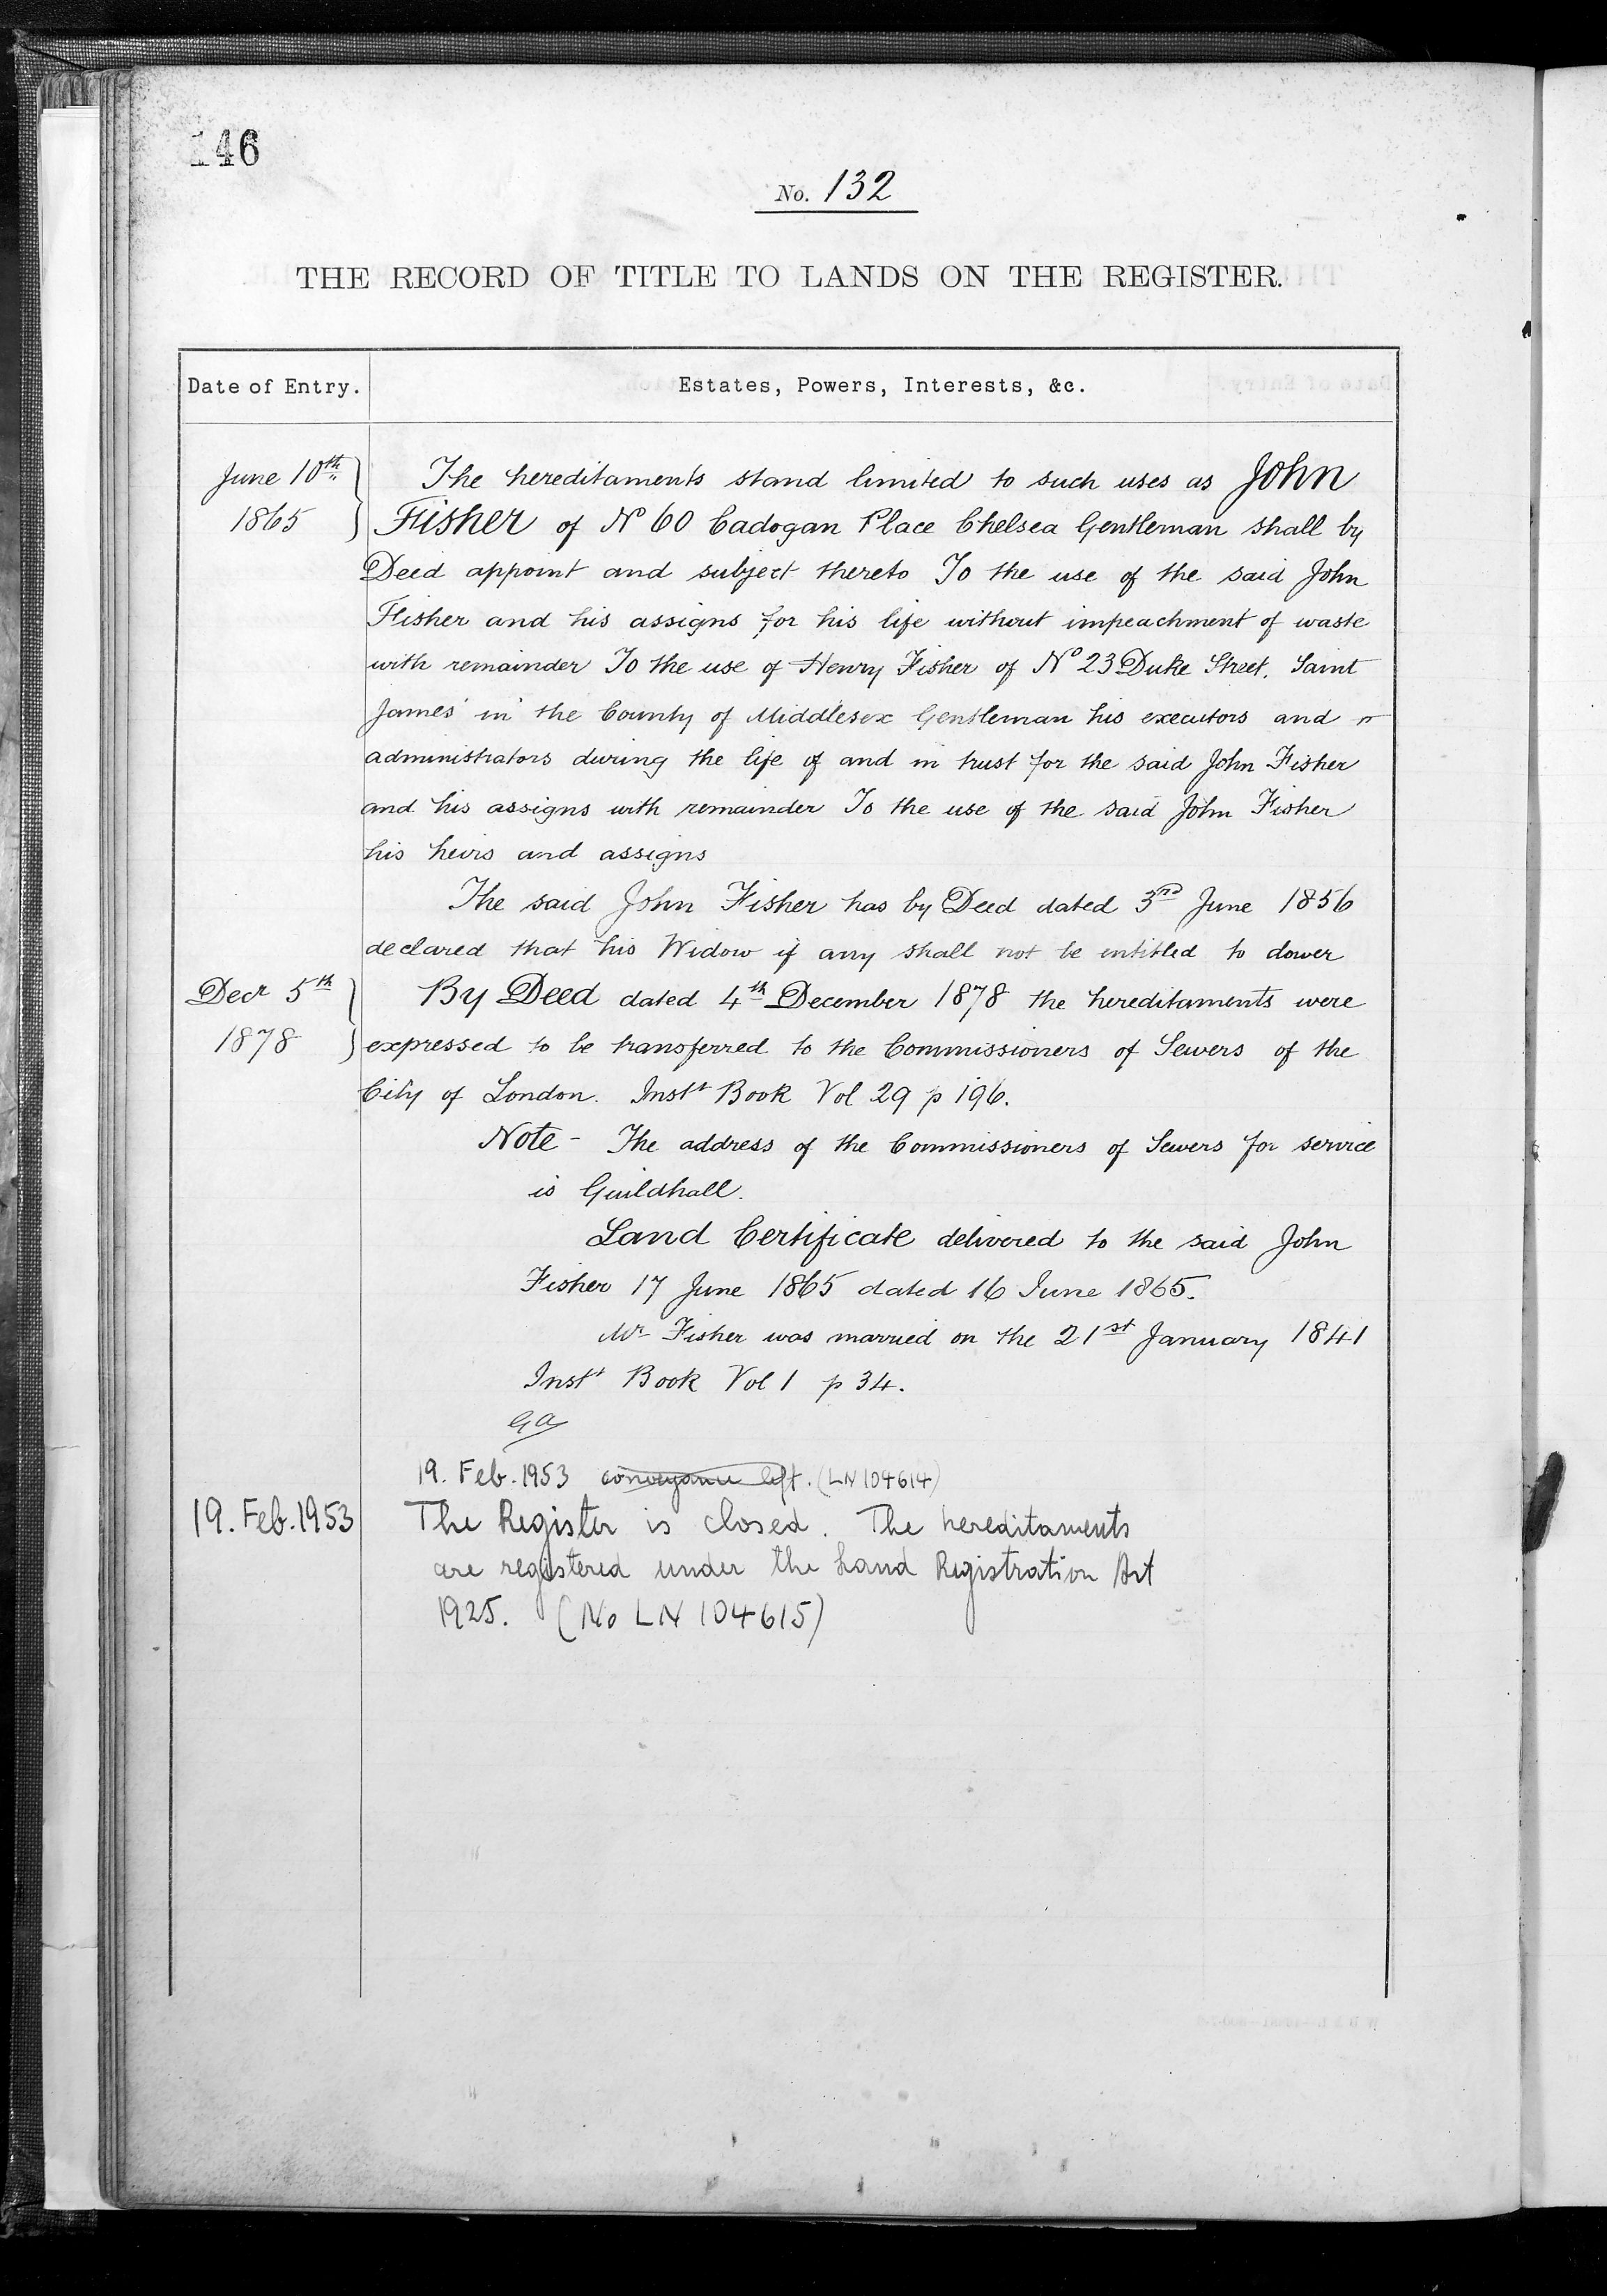 146
No. 132
THE RECORD OF TITLE TO LANDS ON THE REGISTER.
Date of Entry. Estates, Powers, Interests, &c.
June 10th 1865 The hereditaments stand limited to such uses as John
Fisher of No 60 Cadogan Place Chelsea Gentleman shall by
Deed appoint and subject thereto To the use of the said John
Fisher and his assigns for his life without impeachment of waste
with remainder To the use of Henry Fisher of No 23 Duke Street. Saint
James' in the County of Middlesex Gentleman his executors and
administrators during the life of and in trust for the said John Fisher
and his assigns with remainder To the use of the said John Fisher
his heirs and assigns
The said John Fisher has by Deed dated 3rd June 1856
declared that his Widow if any shall not be entitled to dower
Decr 5th 1878 By Deed dated 4th December 1878 the hereditaments were
expressed to be transferred to the Commissioners of Sewers of the
City of London. Instt Book Vol 29 p 196.
Note - The address of the Commissioners of Sewers for service
is Guildhall.
Land Certificate delivered to the said John
Fisher 17 June 1865 dated 16 June 1865.
Mr Fisher was married on the 21st January 1841
Instt Book Vol 1 p 34.
19. Feb. 1953 conveyance left. (LN 104614)
19. Feb. 1953 The Register is closed. The hereditaments
are registered under the Land Registration Act
1925. (No LN 104615)